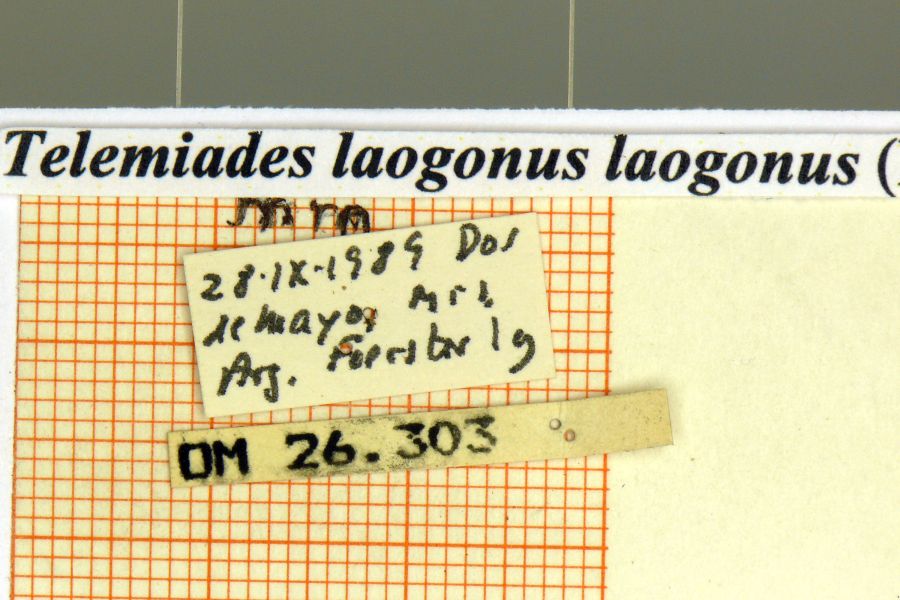 Telemiades laogonus laogonus (
mm
28·IX·1989 Dos
de mayo, Mis.
Arg. Foerster lg
OM 26.303